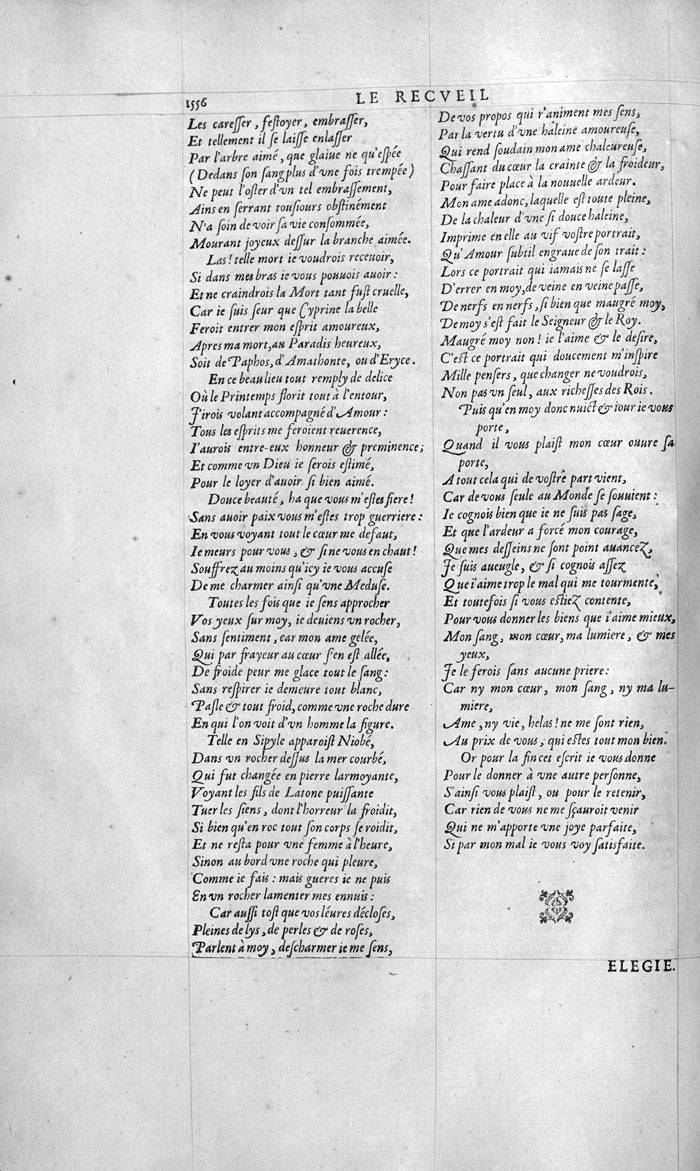 1556
LE RECVEIL
Les caresser, festoyer, embrasser,
Et tellement il se laisse enlasser
Par l'arbre aimé, que glaiue ne qu'espée
(Dedans son sang plus d'vne fois trempée)
Ne peut l'oster d'vn tel embrassement,
Ains en serrant tousiours obstinément
N'a soin de voir sa vie consommée,
Mourant joyeux dessur la branche aimée.
Las! telle mort ie voudrois receuoir,
Si dans mes bras ie vous pouuois auoir:
Et ne craindrois la Mort tant fust cruelle,
Car ie suis seur que Cyprine la belle
Feroit entrer mon esprit amoureux,
Apres ma mort, au Paradis heureux,
Soit de Paphos, d'Amathonte, ou d'Eryce.
En ce beau lieu tout remply de delice
Où le Printemps florit tout à l'entour,
J'irois volant accompagné d'Amour:
Tous les esprits me feroient reuerence,
I'aurois entre-eux honneur & preminence;
Et comme vn Dieu ie serois estimé,
Pour le loyer d'auoir si bien aimé.
Douce beauté, ha que vous m'estes fiere!
Sans auoir paix vous m'estes trop guerriere:
En vous voyant tout le cœur me defaut,
Ie meurs pour vous, & si ne vous en chaut!
Souffrez au moins qu'icy ie vous accuse
De me charmer ainsi qu'vne Meduse.
Toutes les fois que ie sens approcher
Vos yeux sur moy, ie deuiens vn rocher,
Sans sentiment, car mon ame gelée,
Qui par frayeur au cœur s'en est allée,
De froide peur me glace tout le sang:
Sans respirer ie demeure tout blanc,
Pasle & tout froid, comme vne roche dure
En qui l'on voit d'vn homme la figure.
Telle en Sipyle apparoist Niobé,
Dans vn rocher dessus la mer courbé,
Qui fut changée en pierre larmoyante,
Voyant les fils de Latone puissante
Tuer les siens, dont l'horreur la froidit,
Si bien qu'en roc tout son corps se roidit,
Et ne resta pour vne femme à l'heure,
Sinon au bord vne roche qui pleure,
Comme ie fais: mais gueres ie ne puis
En vn rocher lamenter mes ennuis:
Car aussi tost que vos léures décloses,
Pleines de lys, de perles & de roses,
Parlent à moy, descharmer ie me sens,
De vos propos qui r'animent mes sens,
Par la vertu d'vne haleine amoureuse,
Qui rend soudain mon ame chaleureuse,
Chassant du cœur la crainte & la froideur,
Pour faire place à la nouuelle ardeur.
Mon ame donc, laquelle est toute pleine,
De la chaleur d'vne si douce haleine,
Imprime en elle au vif vostre portrait,
Qu'Amour subtil engraue de son trait:
Lors ce portrait qui iamais ne se lasse
D'errer en moy, de veine en veine passe,
De nerfs en nerfs, si bien que maugré moy,
De moy s'est fait le Seigneur & le Roy.
Maugré moy non! ie l'aime & le desire,
C'est ce portrait qui doucement m'inspire
Mille pensers, que changer ne voudrois,
Non pas vn seul, aux richesses des Rois.
Puis qu'en moy donc nuict & iour ie vous
porte,
Quand il vous plaist mon cœur ouure sa
porte,
A tout cela qui de vostre part vient,
Car de vous seule au Monde se souuient:
Ie cognois bien que ie ne suis pas sage,
Et que l'ardeur a forcé mon courage,
Que mes desseins ne sont point auancez,
Je suis aueugle, & si cognois assez
Que i'aime trop le mal qui me tourmente,
Et toutefois si vous estiez contente,
Pour vous donner les biens que i'aime mieux,
Mon sang, mon cœur, ma lumiere, & mes
yeux,
Je le ferois sans aucune priere:
Car ny mon cœur, mon sang, ny ma lu-
miere,
Ame, ny vie, helas! ne me sont rien,
Au prix de vous, qui estes tout mon bien.
Or pour la fin cet escrit ie vous donne
Pour le donner à vne autre personne,
S'ainsi vous plaist, ou pour le retenir,
Car rien de vous ne me sçauroit venir
Qui ne m'apporte vne joye parfaite,
Si par mon mal ie vous voy satisfaite.
ELEGIE.